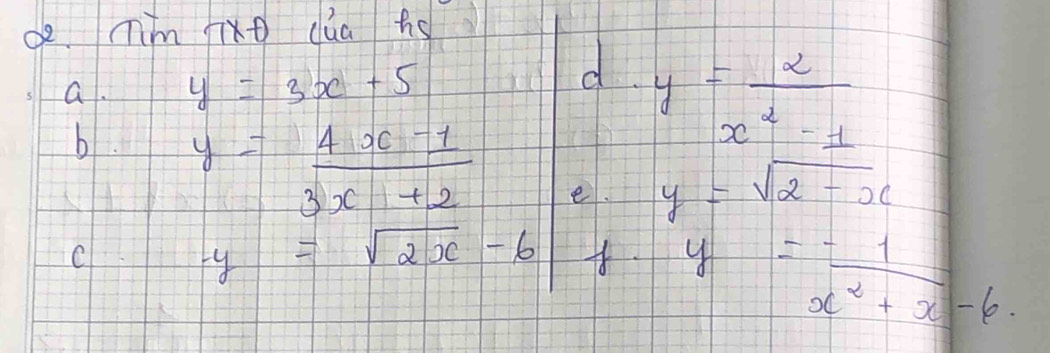 2. Tìm TXĐ của hs
a. y = 3x + 5
b. y = (4x - 1)/(3x + 2)
c. y = √(2x) - 6
d. y = 2/(x² - 1)
e. y = √(2 - x)
f. y = -1/(x² + x - 6).